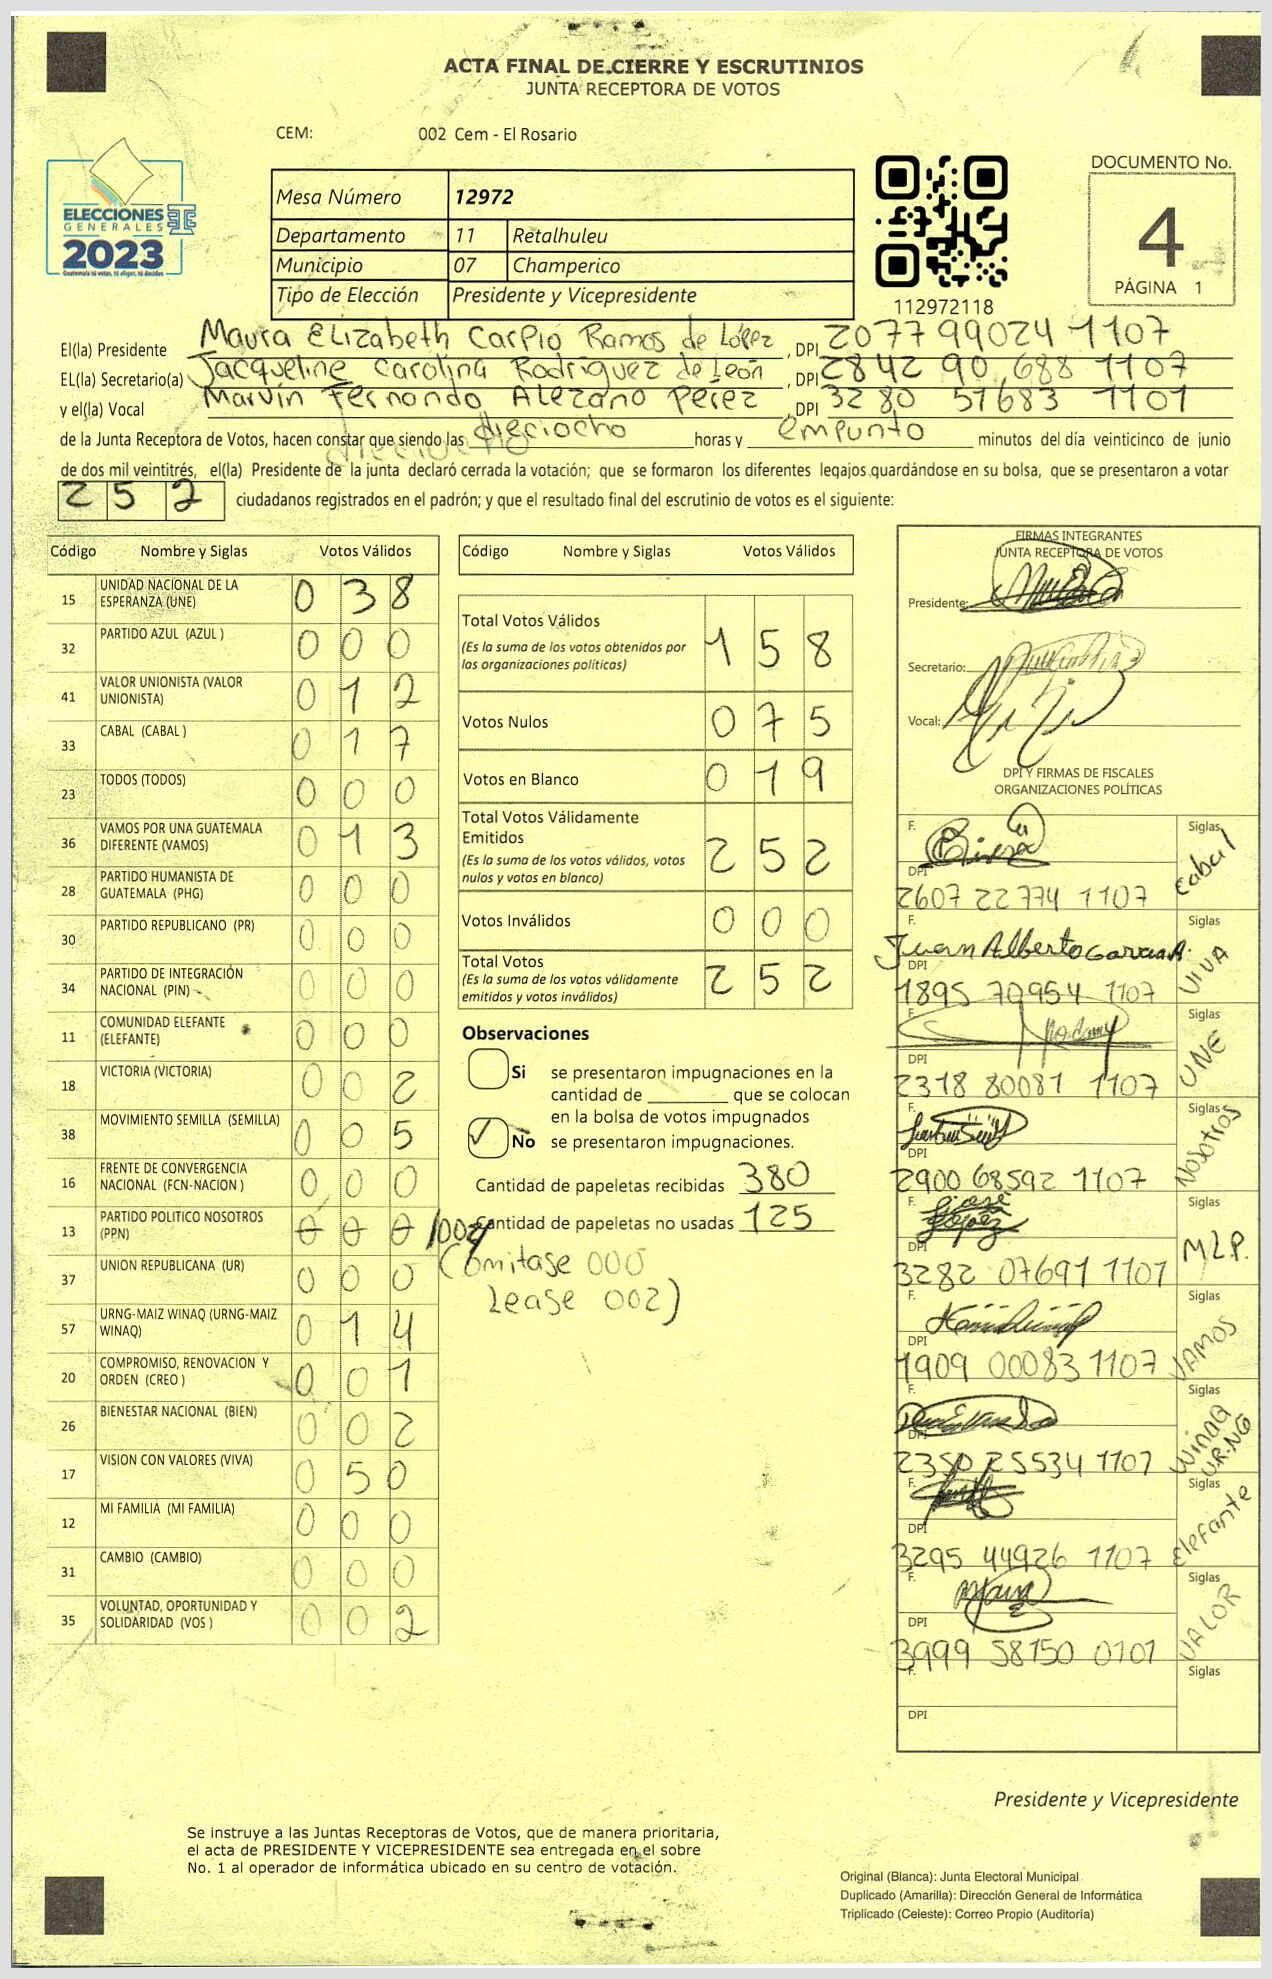 ACTA FINAL DE CIERRE Y ESCRUTINIOS
JUNTA RECEPTORA DE VOTOS
CEM: 002 Cem - El Rosario
ELECCIONES
GENERALES
2023
Guatemala tú votas, tú eliges, tú decides
Mesa Número 12972
Departamento 11 Retalhuleu
Municipio 07 Champerico
Tipo de Elección Presidente y Vicepresidente
112972118
DOCUMENTO No.
4
PÁGINA 1
El(la) Presidente Maura Elizabeth Carpio Ramos de López, DPI 2077 99024 1107
EL(la) Secretario(a) Jacqueline Carolina Rodriguez de León, DPI 2842 90 688 1107
y el(la) Vocal Marvin Fernando Alezano Perez, DPI 3280 51683 1101
de la Junta Receptora de Votos, hacen constar que siendo las dieciocho horas y empunto minutos del día veinticinco de junio
de dos mil veintitrés, el(la) Presidente de la junta declaró cerrada la votación; que se formaron los diferentes legajos guardándose en su bolsa, que se presentaron a votar
252 ciudadanos registrados en el padrón; y que el resultado final del escrutinio de votos es el siguiente:
Código Nombre y Siglas Votos Válidos
15 UNIDAD NACIONAL DE LA ESPERANZA (UNE) 0 3 8
32 PARTIDO AZUL (AZUL ) 0 0 0
41 VALOR UNIONISTA (VALOR UNIONISTA) 0 1 2
33 CABAL (CABAL ) 0 1 7
23 TODOS (TODOS) 0 0 0
36 VAMOS POR UNA GUATEMALA DIFERENTE (VAMOS) 0 1 3
28 PARTIDO HUMANISTA DE GUATEMALA (PHG) 0 0 0
30 PARTIDO REPUBLICANO (PR) 0 0 0
34 PARTIDO DE INTEGRACIÓN NACIONAL (PIN) 0 0 0
11 COMUNIDAD ELEFANTE (ELEFANTE) 0 0 0
18 VICTORIA (VICTORIA) 0 0 2
38 MOVIMIENTO SEMILLA (SEMILLA) 0 0 5
16 FRENTE DE CONVERGENCIA NACIONAL (FCN-NACION ) 0 0 0
13 PARTIDO POLITICO NOSOTROS (PPN) 0 0 0
37 UNION REPUBLICANA (UR) 0 0 0
57 URNG-MAIZ WINAQ (URNG-MAIZ WINAQ) 0 1 4
20 COMPROMISO, RENOVACION Y ORDEN (CREO ) 0 0 1
26 BIENESTAR NACIONAL (BIEN) 0 0 2
17 VISION CON VALORES (VIVA) 0 5 0
12 MI FAMILIA (MI FAMILIA) 0 0 0
31 CAMBIO (CAMBIO) 0 0 0
35 VOLUNTAD, OPORTUNIDAD Y SOLIDARIDAD (VOS ) 0 0 2
Código Nombre y Siglas Votos Válidos
Total Votos Válidos 1 5 8
(Es la suma de los votos obtenidos por las organizaciones políticas)
Votos Nulos 0 7 5
Votos en Blanco 0 1 9
Total Votos Válidamente Emitidos 2 5 2
(Es la suma de los votos válidos, votos nulos y votos en blanco)
Votos Inválidos 0 0 0
Total Votos 2 5 2
(Es la suma de los votos válidamente emitidos y votos inválidos)
Observaciones
Si se presentaron impugnaciones en la
cantidad de ________ que se colocan
en la bolsa de votos impugnados
No se presentaron impugnaciones.
Cantidad de papeletas recibidas 380
Cantidad de papeletas no usadas 125
(Omitase 000
Lease 002)
FIRMAS INTEGRANTES
JUNTA RECEPTORA DE VOTOS
Presidente:
Secretario:
Vocal:
DPI Y FIRMAS DE FISCALES
ORGANIZACIONES POLÍTICAS
F. Siglas Cabal
DPI 2607 22 774 1107
F. Juan Alberto Garcia A. Siglas VIVA
DPI 1895 79954 1107
F. Siglas UNE
DPI 2318 80081 1107
F. Siglas Nosotros
DPI 2900 68592 1107
F. José López Siglas MLP.
DPI 3282 07691 1101
F. Siglas VAMOS
DPI 1909 00083 1107
F. Siglas Winaq UR-NG
DPI 2350 25534 1107
F. Siglas Elefante
DPI 3295 44926 1107
F. Siglas VALOR
DPI 3999 58150 0101
F. Siglas
DPI
Presidente y Vicepresidente
Se instruye a las Juntas Receptoras de Votos, que de manera prioritaria,
el acta de PRESIDENTE Y VICEPRESIDENTE sea entregada en el sobre
No. 1 al operador de informática ubicado en su centro de votación.
Original (Blanca): Junta Electoral Municipal
Duplicado (Amarilla): Dirección General de Informática
Triplicado (Celeste): Correo Propio (Auditoría)